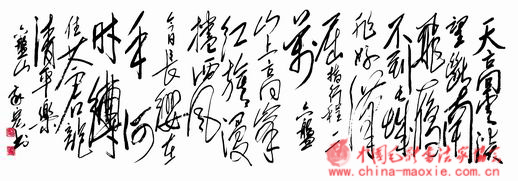 天高雲淡
望断南
飛雁
不到长城
非好漢
屈指行程二
萬
六盤
山上高峰
红旗漫
捲西風
今日長纓在
手何
時缚
住苍龍
清平樂
六盤山
www.china-maoxie.com